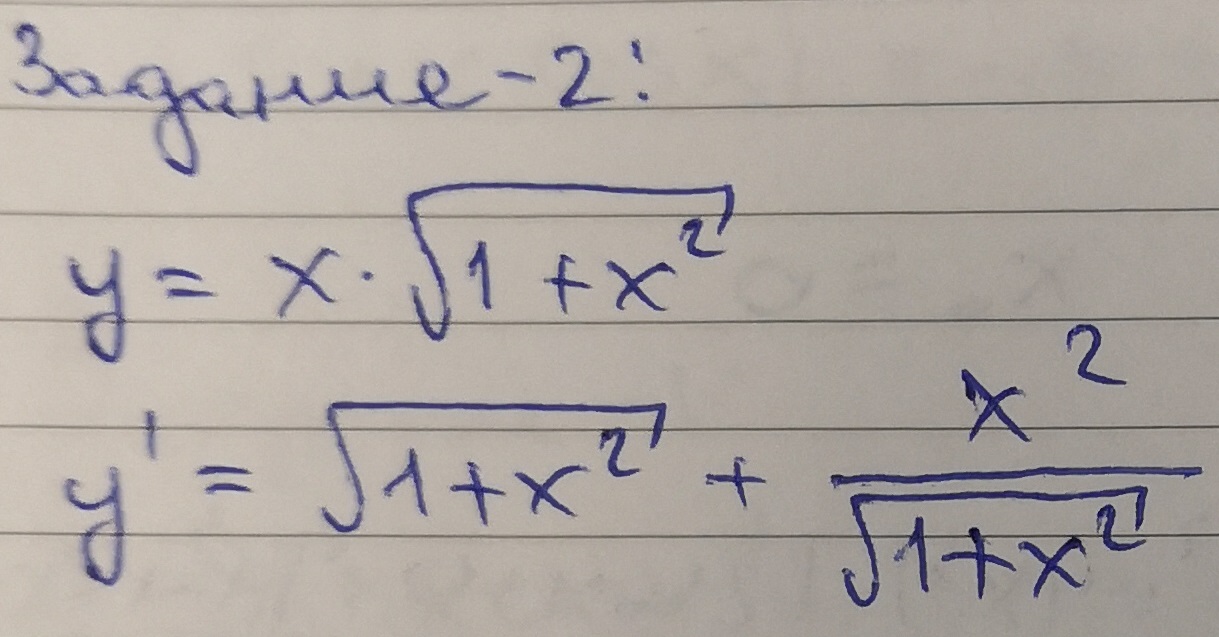 Задание-2:
y = x · √(1 + x²)
y' = √(1 + x²) + x² / √(1 + x²)